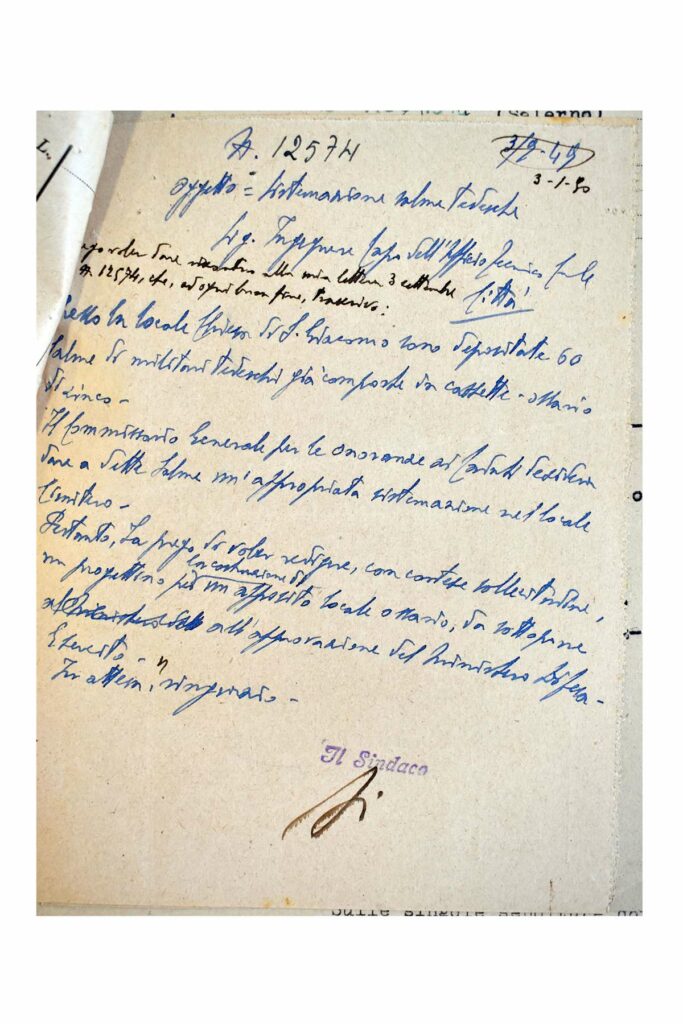 (Salerno)
N. 12574
3/9-49
3-1-50
Oggetto = Sistemazione salme tedesche
Sig. Ingegnere Capo dell'Ufficio Tecnico
Città
voler dare riscontro alla mia lettera 3 settembre
N. 12574, che, ad ogni buon fine, trascrivo:
la locale Chiesa di S. Giacomo sono depositate 60
salme di militari tedeschi già composte in cassette-ossario
di zinco-
Il Commissario Generale per le onoranze ai Caduti desidera
dare a dette salme un'appropriata sistemazione nel locale
Cimitero-
Pertanto, La prego di voler redigere, con cortese sollecitudine,
la costruzione di
un progettino per un apposito locale ossario, da sottoporre
all'approvazione del Ministero Difesa-
Esercito-
In attesa, ringrazio-
Il Sindaco